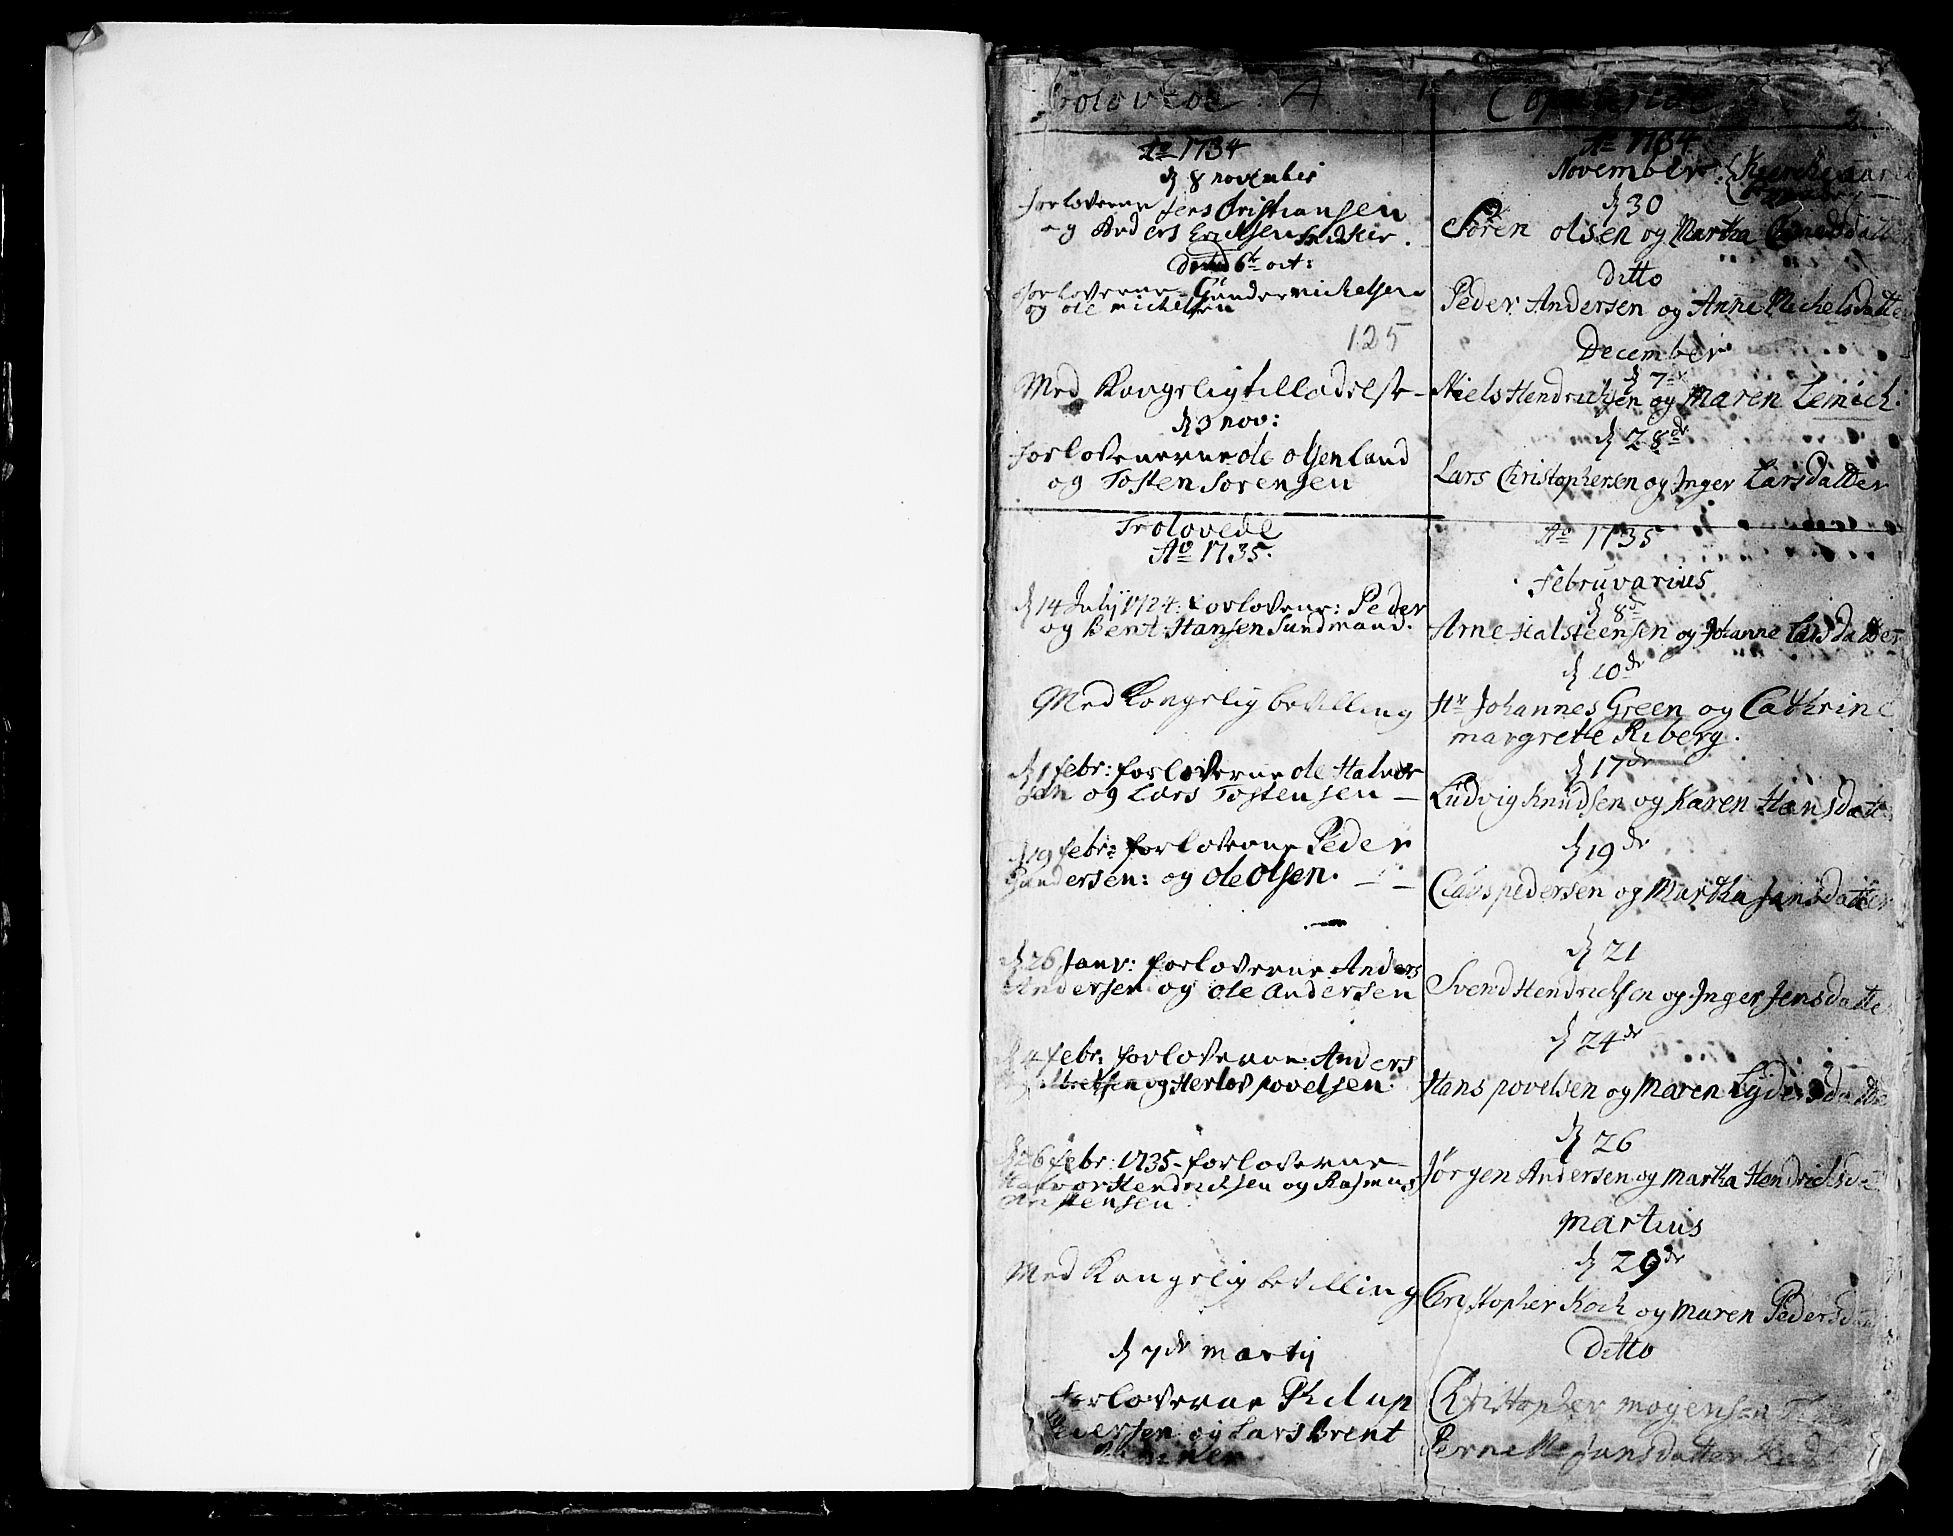 Trolovede A
Aº 1734
d 8 november
forloverne Jens Christiansen
og Anders Ericksen
6te oct:
forloverne Gunder michelsen
og ole michelsen
125
Med Kongelig tilladelse
d 3 nov:
forloverne ole olsen land
og Tosten Sorensen
Trolovede
Aº 1735.
d 14 Julij 1724: forlovene: Peder
og Bent Hansen Sundmand.
Med Kongelig bevilling
d 1 febr: forloverne ole Halvor
sen og Lars Tostensen
d 19 febr: forloverne Peder
Gundersen: og ole olsen.
d 26 Janv: forloverne Anders
Andersen og ole andersen
d 4 febr: forloverne Anders
og Herlov povelsen
d 26 febr: 1735 forloverne
Halvor Hendrichsen og Rasmus
Med Kongelig bevilling
d 7de martij
forloverne Philup
Pedersen og Lars Brent
Copulerede
2
Aº 1734
November
d 30
Sören olsen og Martha
ditto
Peder Andersen og Anne Michelsdatter
December
d 7
Niels Hendrichsen og Maren Lemich.
d 28de
Lars Christophersen og Inger Larsdatter
Aº 1735
Februvarius
d 8d
Arne Halsteensen og Johanne Larsdatter
d 10de
Hr Johannes Green og Cathrine
margrette Riberg.
d 17de
Ludvig Knudsen og Karen Hansdatter
d 19de
Claus pedersen og Martha Jansdatter
d 21
Svend Hendrichsen og Inger Jensdatter
d 24de
Hans povelsen og Maren Lydersdatter
d 26
Jörgen Andersen og Martha Hendrichsd
Martius
d 29de
Christopher Koch og Maren Pedersd
Ditto
Christopher mogensen
Pernelle Jansdatter